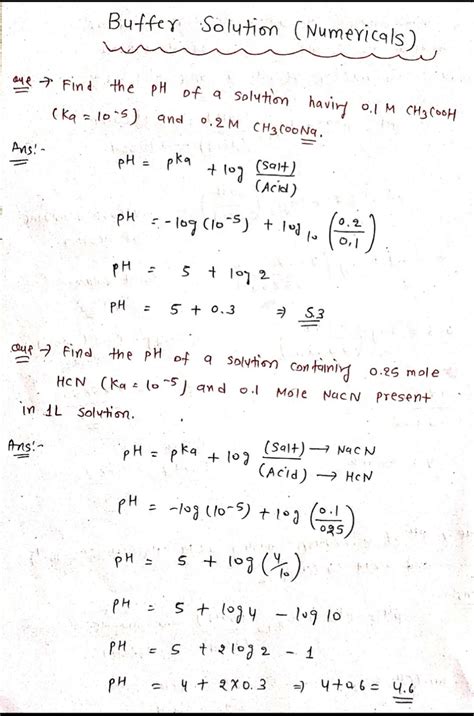 Buffer Solution (Numericals)
Que → Find the pH of a solution having 0.1 M CH3COOH
(Ka = 10^-5) and 0.2 M CH3COONa.
Ans:-
pH = pKa + log (Salt)/(Acid)
pH = -log (10^-5) + log10 (0.2/0.1)
pH = 5 + log 2
pH = 5 + 0.3 ⇒ 5.3
Que → Find the pH of a solution containing 0.25 mole
HCN (Ka = 10^-5) and 0.1 Mole NaCN present
in 1L Solution.
Ans:-
pH = pKa + log (Salt) → NaCN / (Acid) → HCN
pH = -log (10^-5) + log (0.1/025)
pH = 5 + log (4/10)
pH = 5 + log 4 - log 10
pH = 5 + 2 log 2 - 1
pH = 4 + 2x0.3 ⇒ 4+0.6 = 4.6